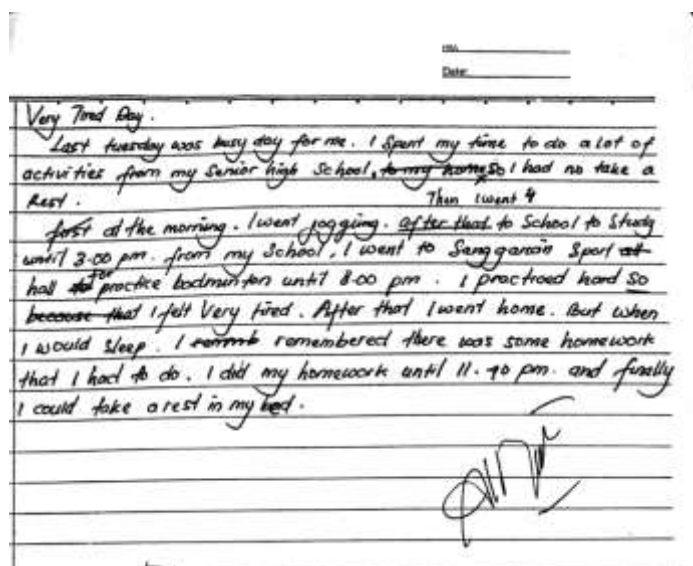 Date:
Very Tired Day.
Last tuesday was busy day for me. I spent my time to do a lot of
activities from my Senior high School, to my home so I had no take a
Rest.
Then I went
first at the morning. I went jogging. after that to School to Study
until 3.00 pm. from my School, I went to Sport
hall for practice badminton until 8.00 pm. I practiced hard So
because that I felt Very tired. After that I went home. But when
I would sleep. I remembered there was some homework
that I had to do. I did my homework until 11. pm. and finally
I could take a rest in my bed.